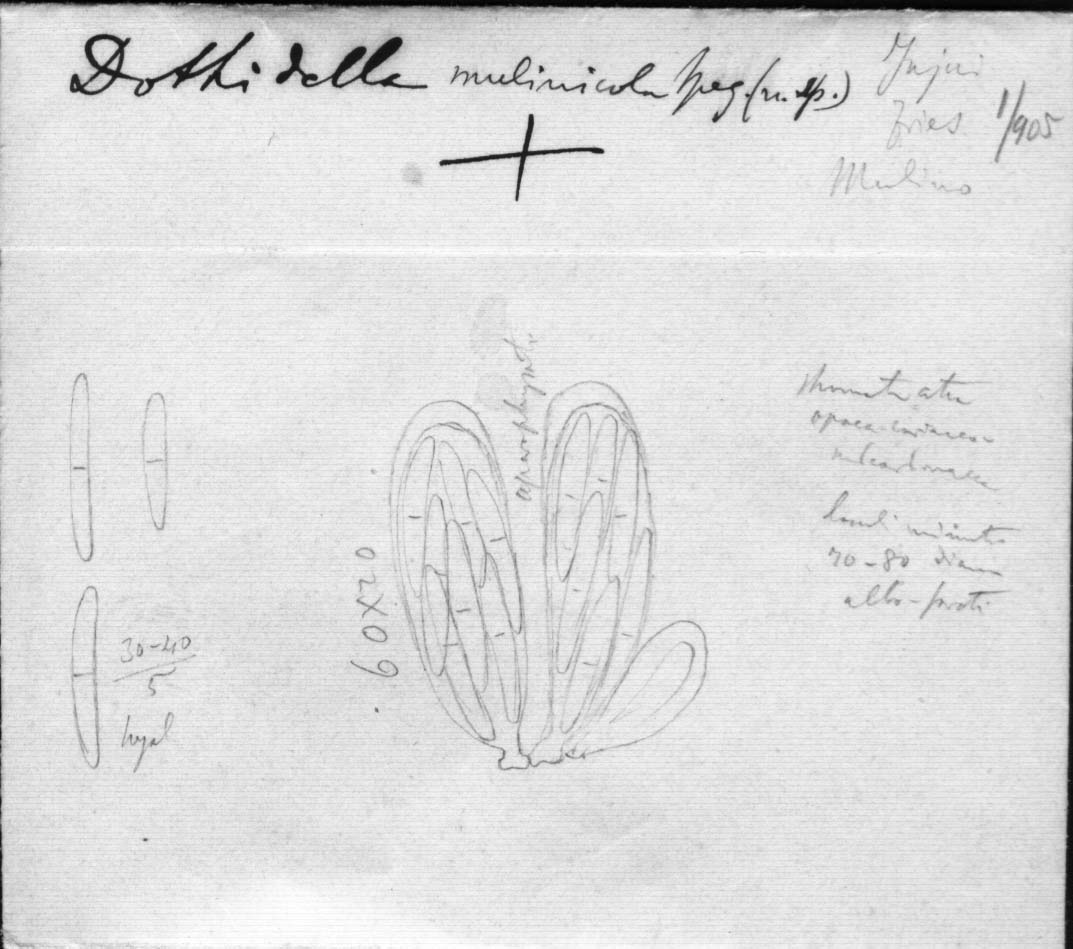 Dothidella mulinicola Speg. (n. sp.)
Jujui
Fries 1/905
Mulino
aparaphysat.
stromata atra
opaca-coriacea
subcarbonacea
loculi minuti
70-80 diam
albo-farcti
60×20
30-40
5
hyal